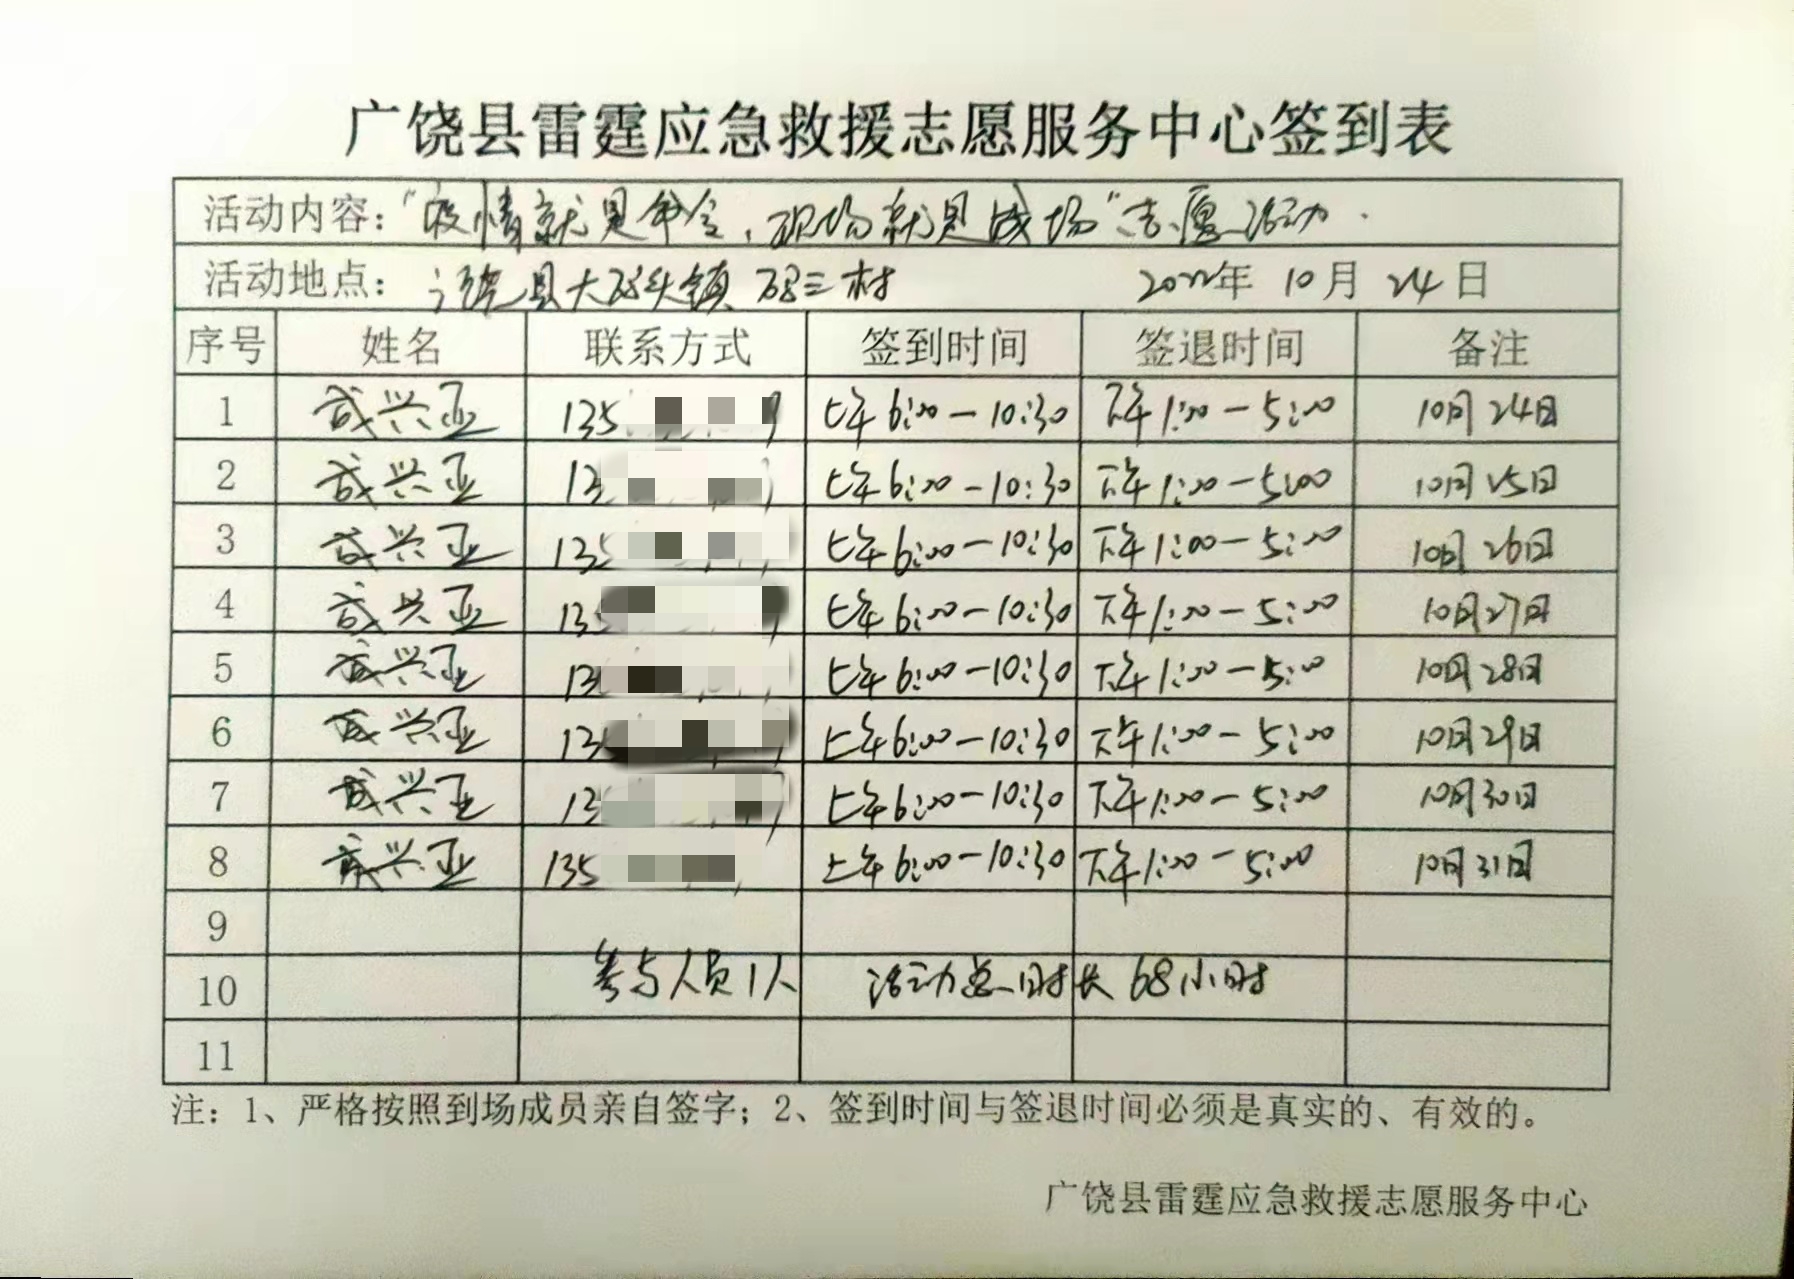 广饶县雷霆应急救援志愿服务中心签到表
活动内容：“疫情就是命令，现场就是战场”志愿活动.
活动地点：广饶县大码头镇 码三村 2022年 10月 24日
序号 姓名 联系方式 签到时间 签退时间 备注
1 成兴亚 135 上午6:00-10:30 下午1:00-5:00 10月24日
2 成兴亚 13 上午6:00-10:30 下午1:00-5:00 10月25日
3 成兴亚 135 上午6:00-10:30 下午1:00-5:00 10月26日
4 成兴亚 135 上午6:00-10:30 下午1:00-5:00 10月27日
5 成兴亚 13 上午6:00-10:30 下午1:00-5:00 10月28日
6 成兴亚 13 上午6:00-10:30 下午1:00-5:00 10月29日
7 成兴亚 13 上午6:00-10:30 下午1:00-5:00 10月30日
8 成兴亚 135 上午6:00-10:30 下午1:00-5:00 10月31日
9
10 参与人员1人 活动总时长68小时
11
注：1、严格按照到场成员亲自签字；2、签到时间与签退时间必须是真实的、有效的。
广饶县雷霆应急救援志愿服务中心